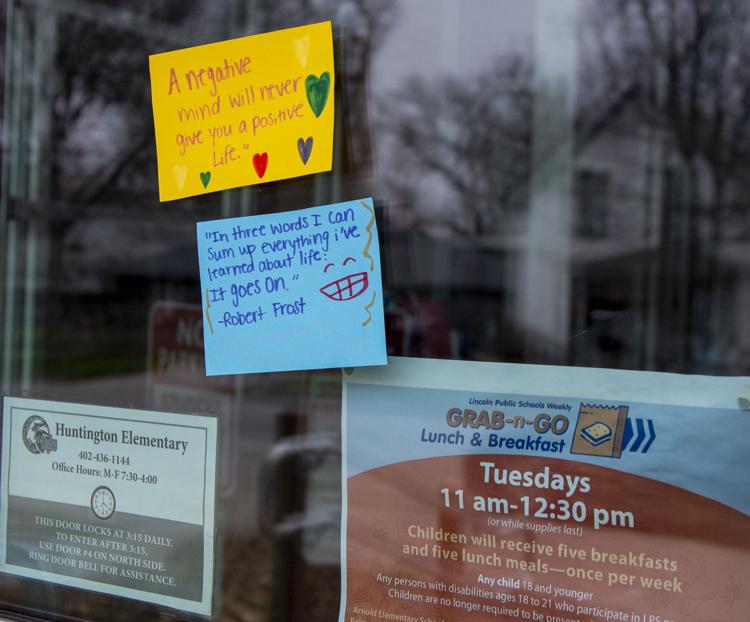 A negative
mind will never
give you a positive
Life."
"In three words I can
sum up everything i've
learned about life:
It goes On."
-Robert Frost
NO
PARKING
Huntington Elementary
402-436-1144
Office Hours: M-F 7:30-4:00
THIS DOOR LOCKS AT 3:15 DAILY.
TO ENTER AFTER 3:15,
USE DOOR #4 ON NORTH SIDE.
RING DOOR BELL FOR ASSISTANCE.
Lincoln Public Schools Weekly
GRAB-n-GO
Lunch & Breakfast
Tuesdays
11 am-12:30 pm
(or while supplies last)
Children will receive five breakfasts
and five lunch meals—once per week
Any child 18 and younger
Any persons with disabilities ages 18 to 21 who participate in LPS
Children are no longer required to be
Arnold Elementary